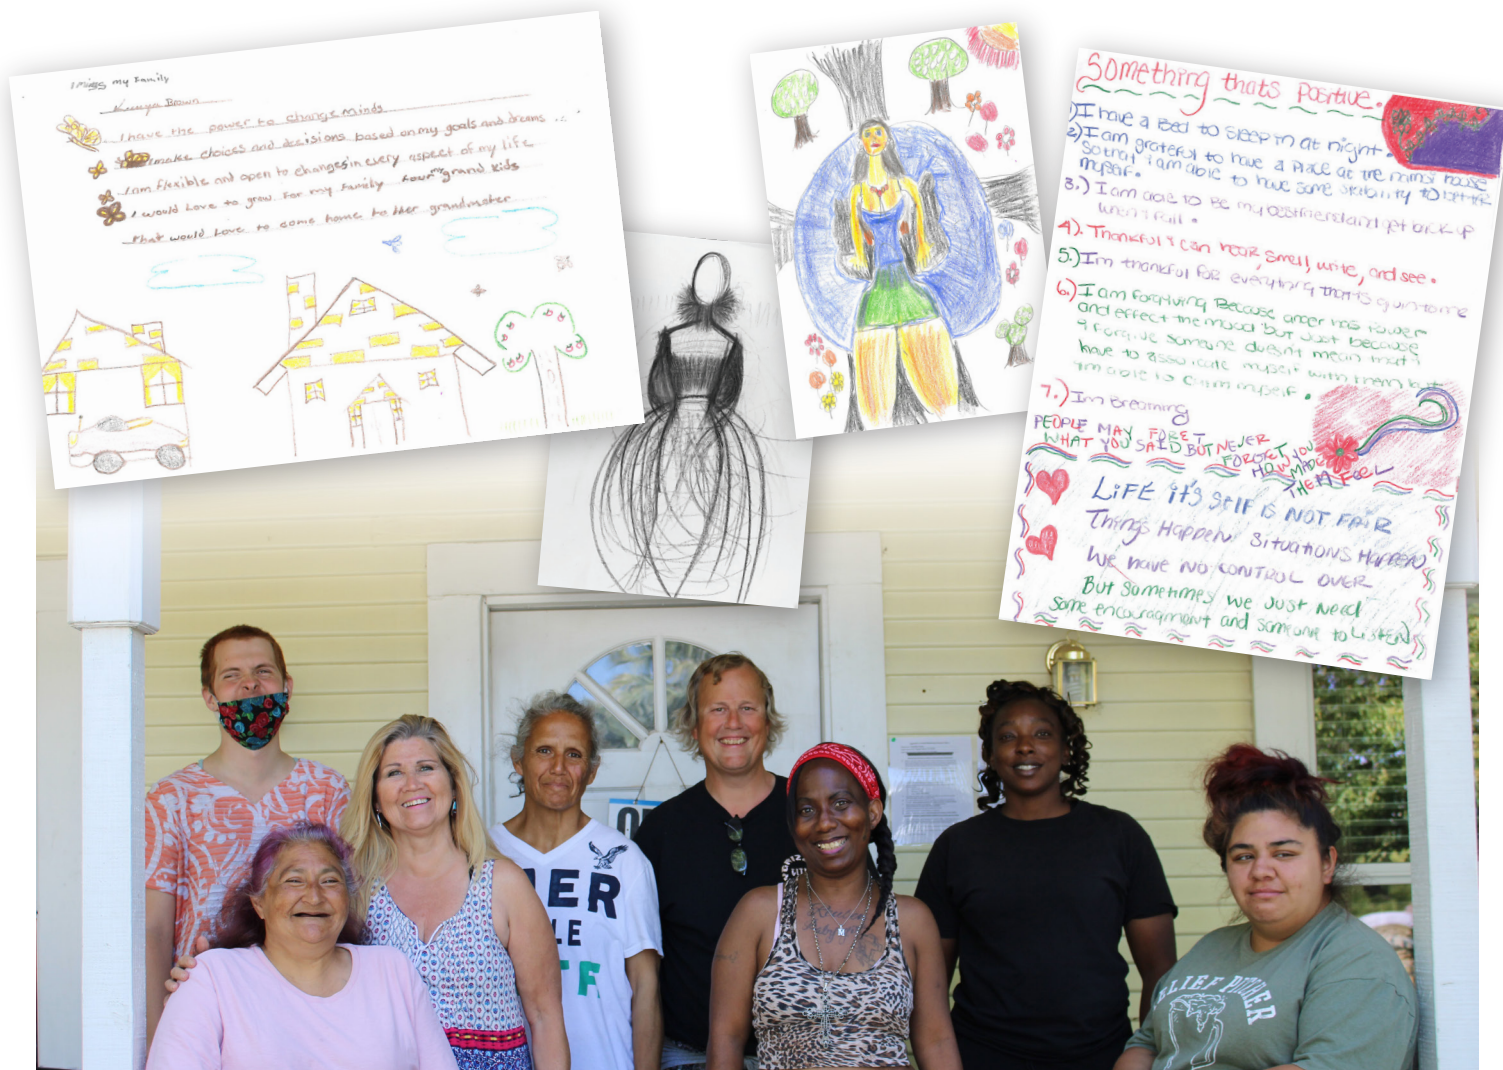 I miss my Family
Kenya Brown
I have the power to change minds
make choices and decisions based on my goals and dreams ...
I am flexible and open to changes in every aspect of my life
I would Love to grow. For my Family four my grand kids
that would Love to come home to ther grandmater
Something thats Positive.
1) I have a Bed to Sleep in at night.
2) I am grateful to have a Place at the house
So that I am able to have some stability to better
myself.
3.) I am able to be my bestfriend and get back up
when I fall.
4). Thankful I can hear, smell, write, and see.
5.) Im thankful for everything that is givin to me
6.) I am Forgiving Because anger has Power
and effect the mood but Just because
I forgive someone doesn't mean that I
have to associate myself with them but
I'm able to Claim myself.
7.) Im Breathing
PEOPLE MAY FORET
WHAT YOU SAID BUT NEVER
FORGET HOW YOU
MADE
THEM FEEL
LiFE it's SElF IS NOT FAIR
Things Happen, Situations Happen
We have NO CONTROL OVER
But Sometimes we Just Need
Some encouragment and Someone to LiSTEN
ER
LE
TF
LIEF POWER